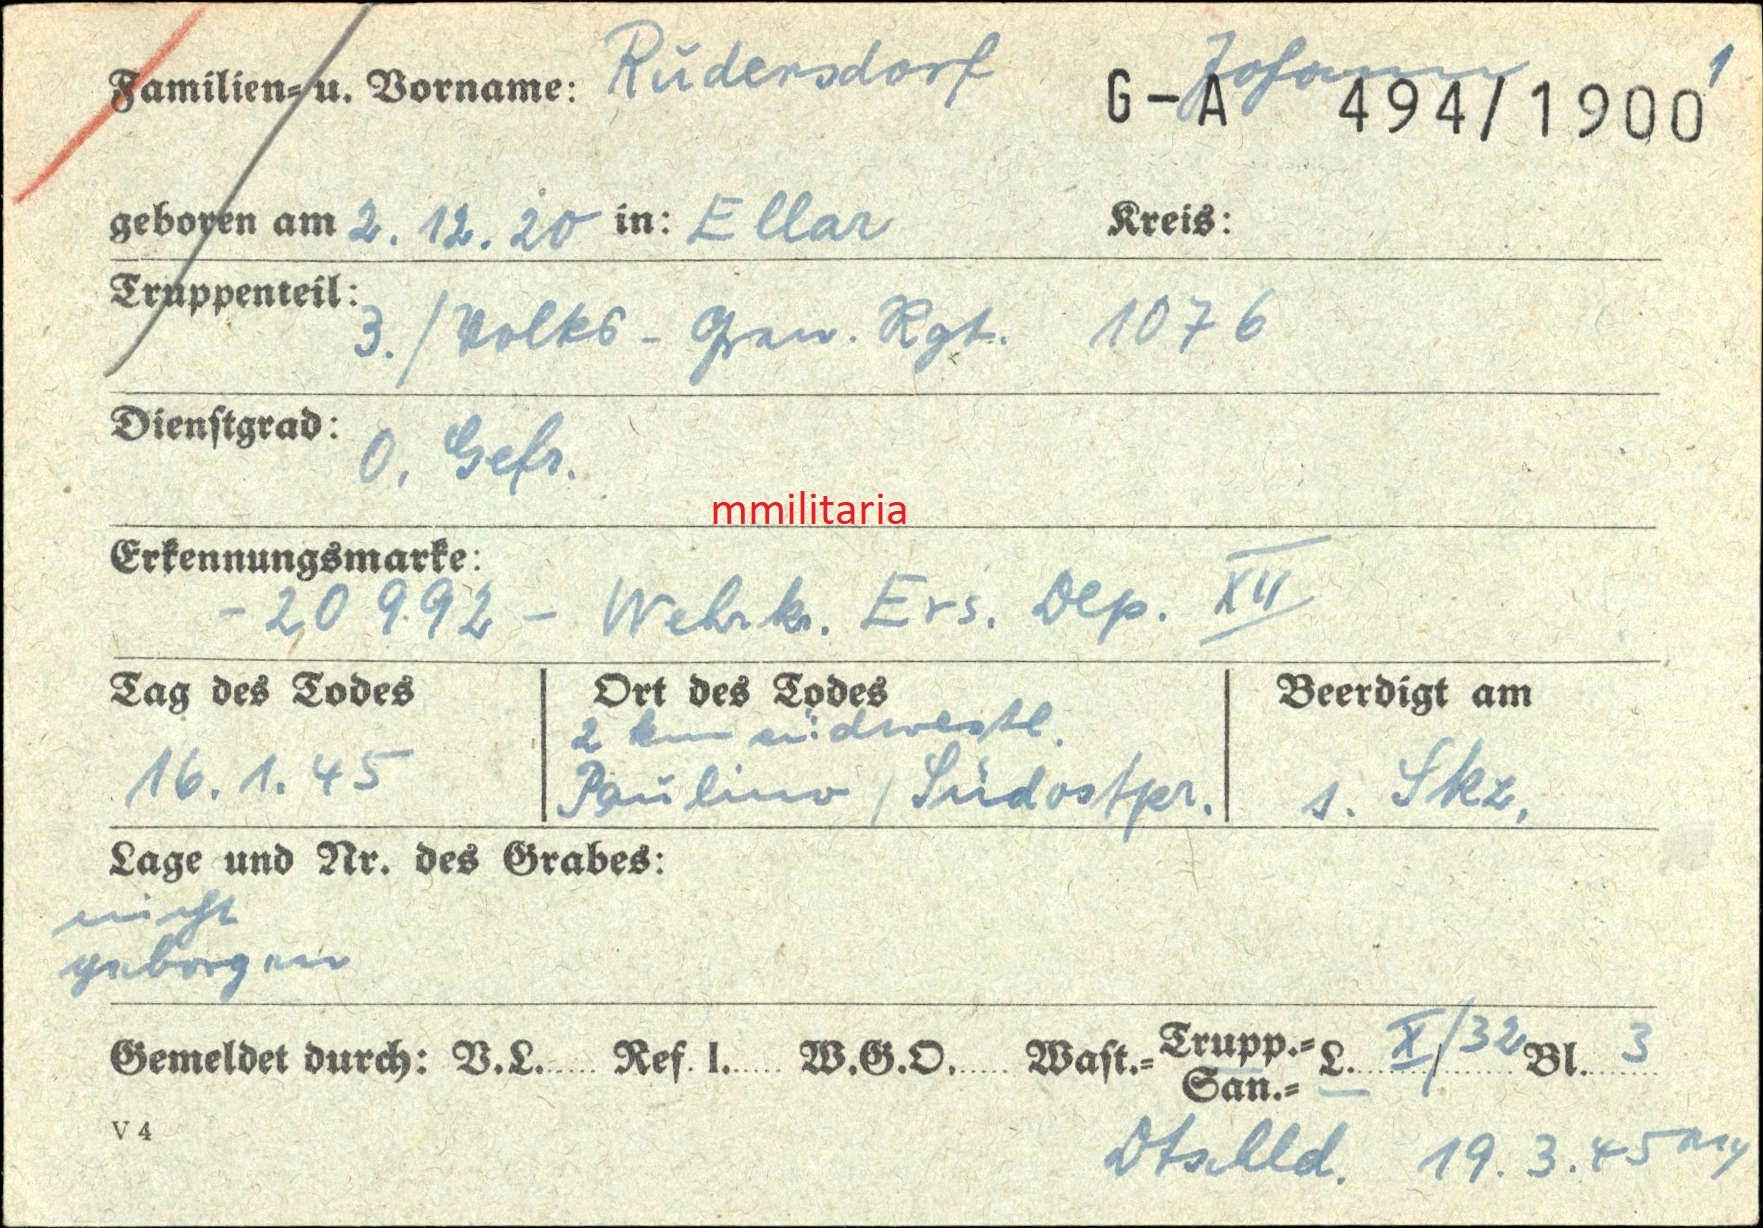 Familien= u. Vorname: Rŭdersdorf Johann 1
G-A 494/1900
geboren am 2.12.20 in: Ellar Kreis:
Truppenteil:
3./Volks-Gren. Rgt. 1076
Dienstgrad: O. Gefr.
mmilitaria
Erkennungsmarke:
-20992- Wehrkr. Ers. Dep. XII
Tag des Todes Ort des Todes Beerdigt am
2 km südwestl.
16.1.45 Paulino / Südostpr. s. Skz.
Lage und Nr. des Grabes:
nicht
geborgen
Gemeldet durch: V.L..... Ref. I..... W.G.O..... Wast.= Trupp.= L. X/32 Bl. 3
San.=
V 4
Dtschld. 19.3.45